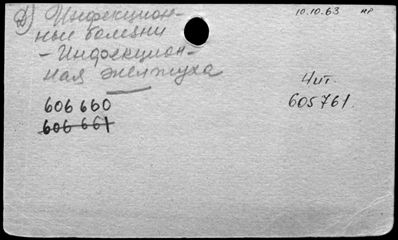 2) Инфекцион-
ные болезни
- Инфекцион-
ная желтуха
606 660
606 661
10.10.63 нр
Чит.
605761.